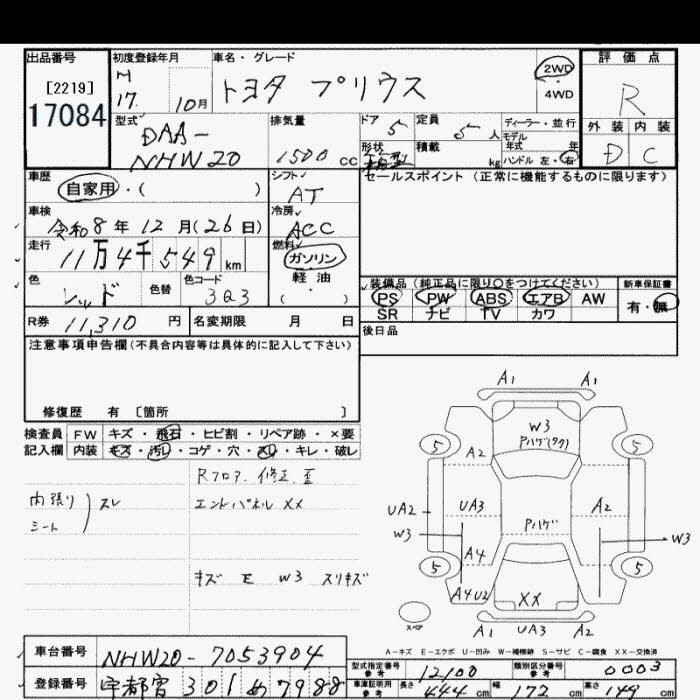 出品番号
[2219]
17084
初度登録年月
H
17. 10月
車名・グレード
トヨタ プリウス
2WD
・
4WD
評価点
R
外装 内装
D C
型式
DAA-
NHW20
排気量
1500 cc
ドア 5
定員 5人
ディーラー・並行
モデル
年式 年
形状
積載 kg
ハンドル 左・右
車歴
自家用・( )
シフト
AT
セールスポイント (正常に機能するものに限ります)
車検
令和8年12月(26日)
冷房
ACC
走行
11万4千549km
燃料
ガソリン
軽油
・
( )
色
レッド
色替
色コード
3Q3
装備品(純正品に限り○をつけてください)
新車保証書
PS PW ABS エアB AW
有・無
SR ナビ TV カワ
R券 11,310 円
名変期限 月 日
後日品
注意事項申告欄(不具合内容等は具体的に記入して下さい)
修復歴 有 [箇所 ]
検査員 FW キズ・飛石・ヒビ割・リペア跡・×要
記入欄 内装 キズ・汚レ・コゲ・穴・スレ・キレ・破レ
Rフロア.修正.歪
内張り
シート
スレ
エンドパネル XX
キズ E W3 スリキズ
A1 A1
W3
Pハゲ(タク)
5 5
A2
UA2 UA3 A2
W3 Pハゲ W3
A4
5 5
A4U2
XX
スペア
A1 UA3 A2
A-キズ E-エクボ U-凹み W-補修跡 S-サビ C-腐食 XX-交換済
車台番号 NHW20-7053904
登録番号 宇都宮 301 め 7988
型式指定番号
参考
12100
類別区分番号
参考
0003
車庫証明用
参考
長さ 444 cm 幅 172 cm 高さ 149 cm